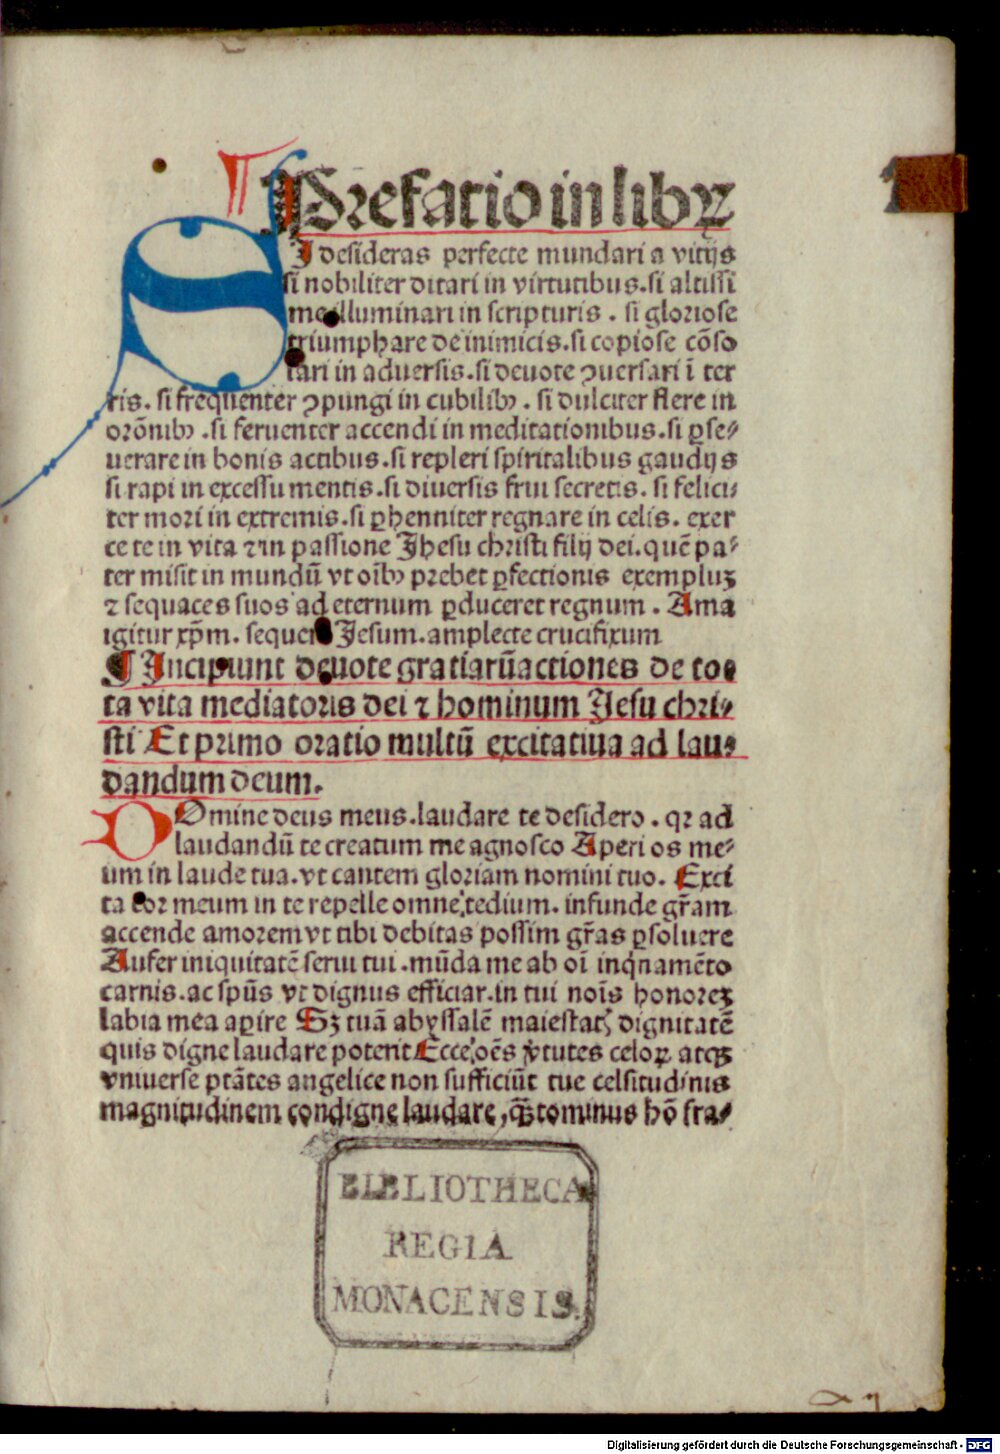 ¶ Prefatio in libꝝ
SI desideras perfecte mundari a vitijs
si nobiliter ditari in virtutibus. si altissi
me illuminari in scripturis . si gloriose
triumphare de inimicis. si copiose cõso
lari in aduersis. si deuote ꝯuersari ĩ ter
ris. si frequenter ꝯpungi in cubilibꝰ . si dulciter flere in
orõnibꝰ . si feruenter accendi in meditationibus. si ꝑse⸗
uerare in bonis actibus. si repleri spiritalibus gaudijs
si rapi in excessu mentis. si diuersis frui secretis. si felici⸗
ter mori in extremis. si ꝑhenniter regnare in celis. exer
ce te in vita ⁊ in passione Jhesu christi filij dei. quẽ pa⸗
ter misit in mundũ vt oĩbꝰ prebet ꝑfectionis exempluꝫ
⁊ sequaces suos ad eternum ꝑduceret regnum . Ama
igitur xp̃m. sequere Jesum. amplecte crucifixum
¶ Incipiunt deuote gratiarũactiones de to⸗
ta vita mediatoris dei ⁊ hominum Jesu chri⸗
sti Et primo oratio multũ excitatiua ad lau⸗
dandum deum.
DOmine deus meus. laudare te desidero . qꝛ ad
laudandũ te creatum me agnosco Aperi os me⸗
um in laude tua. vt cantem gloriam nomini tuo. Exci
ta cor meum in te repelle omne tedium. infunde gr̃am
accende amorem vt tibi debitas possim gr̃as ꝑsoluere
Aufer iniquitatẽ serui tui . mũda me ab oĩ inqͥnamẽto
carnis. ac spũs vt dignus efficiar. in tui noĩs honoreꝫ
labia mea apire Sꝫ tuã abyssalẽ maiestatꝭ dignitatẽ
quis digne laudare poterit Ecce oẽs vͥtutes celoꝝ atqꝫ
vniuerse ptãtes angelice non sufficiũt tue celsitudinis
magnitudinem condigne laudare, qͣꝫtominus hõ fra⸗
BIBLIOTHECA
REGIA
MONACENSIS.
Digitalisierung gefördert durch die Deutsche Forschungsgemeinschaft - DFG